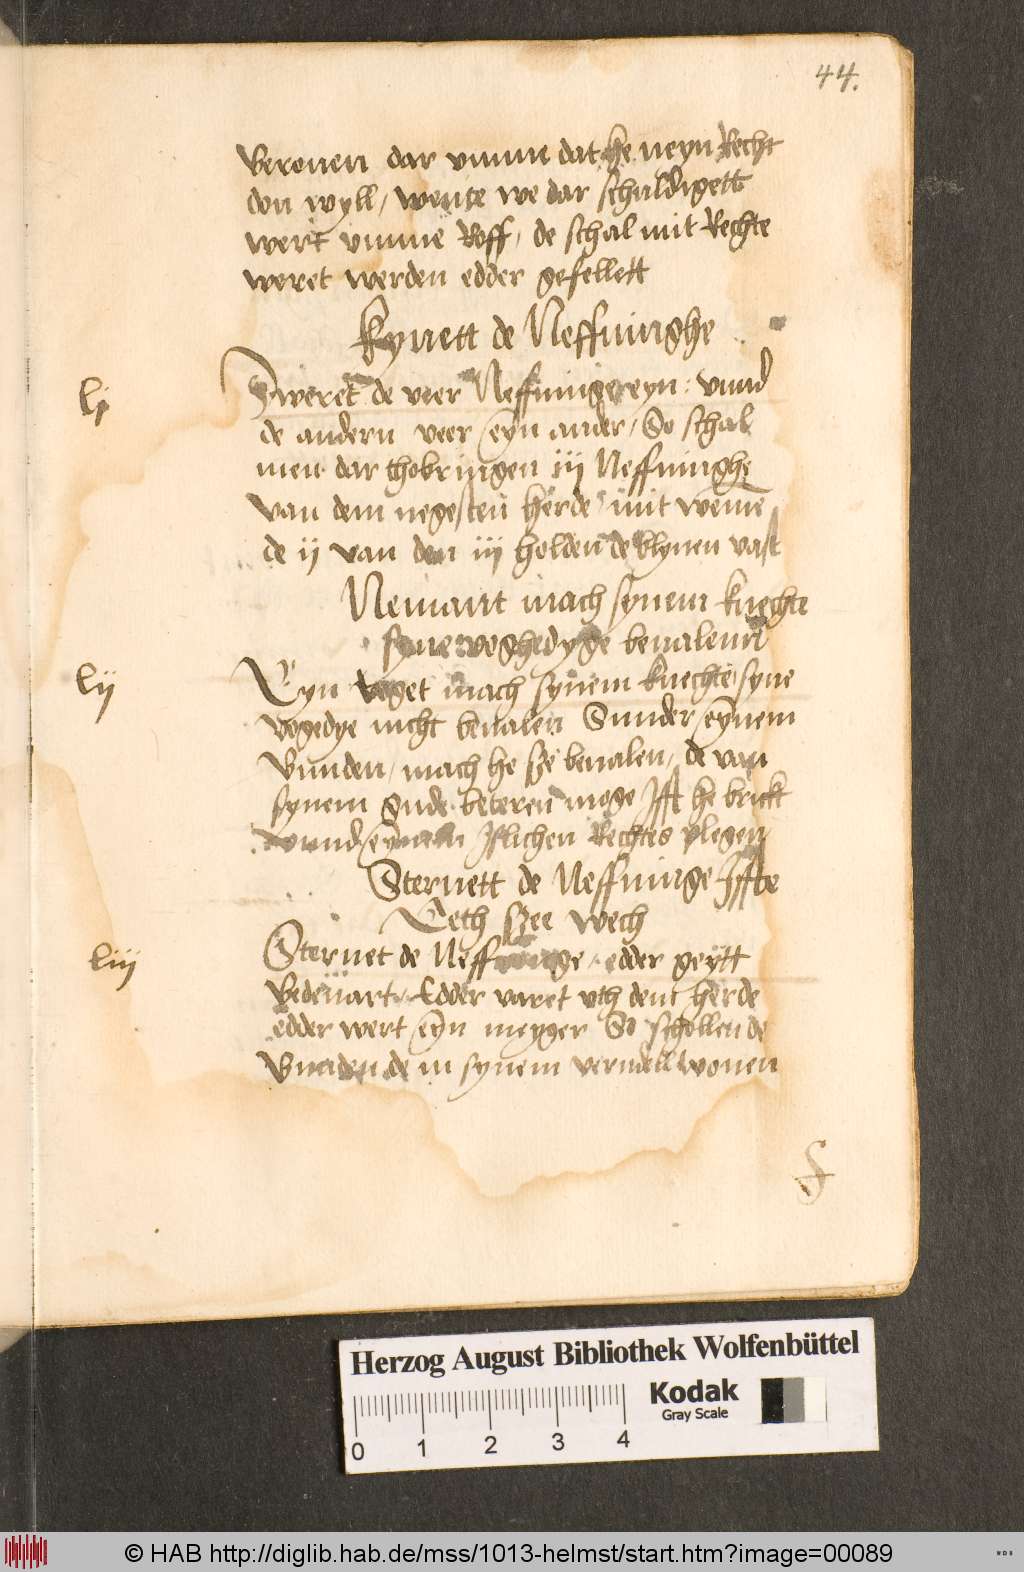 44.
Berouen dar vmme dat he neyn Recht
don wyll / wente we dar schuldigett
wert vmme Roff / de schal mit Rechte
weret werden edder gefellett
Kyuett de Neffninghe
Li
Zweret de vier Neffninge eyn : vnnd
de andern veer eyn ander / So schal
men dar thobringen iij Neffninghe
van dem negesten herde / mit weme
de ij van den iij holden de blyuen vast
Nemant mach synem knechte
syne voghedyge beualenn
Lii
Eyn voget mach synem knechte syne
vogedye nicht beualen Sunder eynem
Bunden / mach he sze beualen / de van
synem gude beteren moge Jfft he brickt
vnnd eynem Jslichen Rechtes plegen
Steruett de Neffninge Jffte
Teth szee wech
Liii
Steruet de Neffninge / edder geytt
Bedeuart / Edder varet vth dem herde
edder wert eyn meyger So schollen de
Bunden de in synem verndell wonen
Herzog August Bibliothek Wolfenbüttel
0 1 2 3 4
Kodak
Gray Scale
© HAB http://diglib.hab.de/mss/1013-helmst/start.htm?image=00089